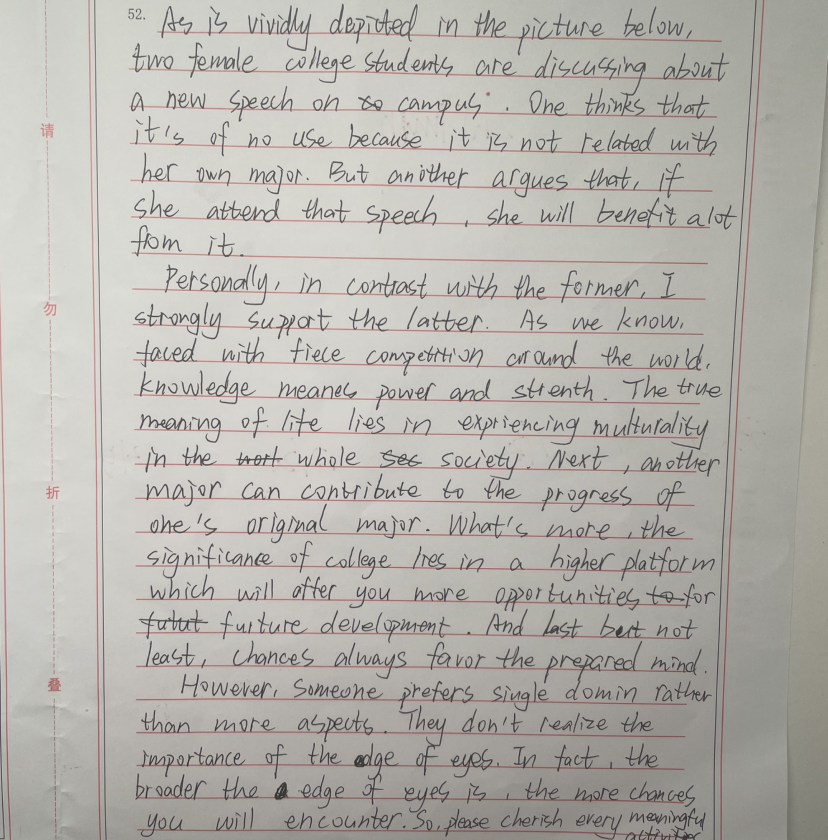 52. As is vividly depicted in the picture below,
two female college students are discussing about
a new speech on to campus. One thinks that
it's of no use because it is not related with
her own major. But another argues that, if
she attend that speech, she will benefit a lot
from it.
请
Personally, in contrast with the former, I
勿
strongly support the latter. As we know,
faced with fiece competition around the world,
knowledge meanes power and strenth. The true
meaning of life lies in expriencing multurality
in the whole society. Next, another
折
major can contribute to the progress of
one's original major. What's more, the
significance of college lies in a higher platform
which will offer you more opportunities to for
furture development. And last but not
least, chances always favor the prepared mind.
叠
However, someone prefers single domin rather
than more aspects. They don't realize the
importance of the edge of eyes. In fact, the
broader the edge of eyes is, the more chances
you will encounter. So, please cherish every meaningful
activities